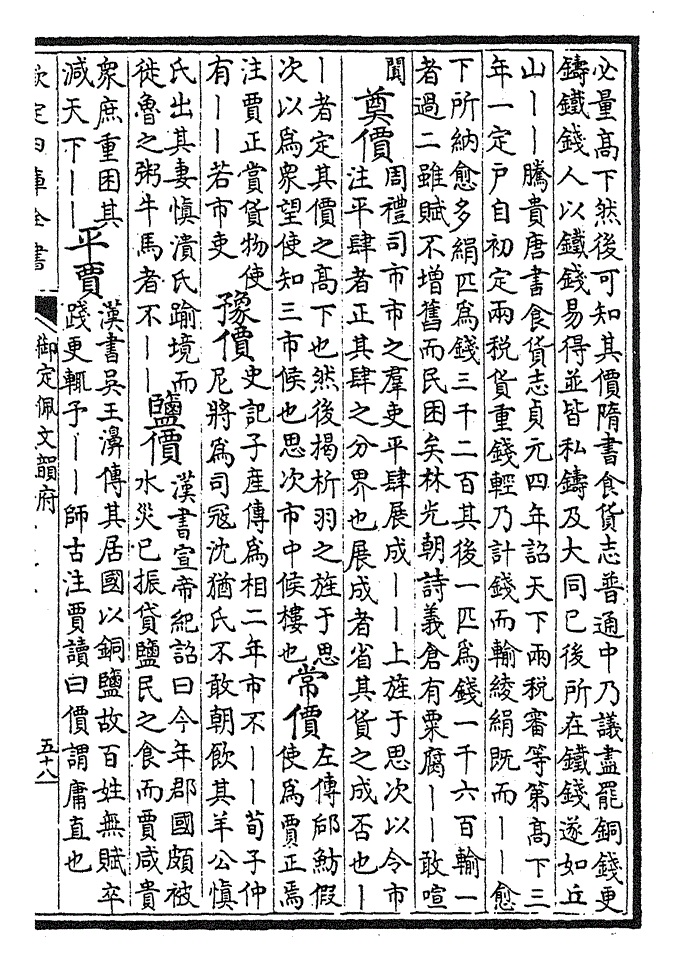 必量高下然後可知其價隋書食貨志普通中乃議盡罷銅錢更
鑄鐵錢人以鐵錢易得並皆私鑄及大同已後所在鐵錢遂如丘
山丨丨騰貴唐書食貨志貞元四年詔天下兩稅審等第高下三
年一定戶自初定兩稅貨重錢輕乃計錢而輸綾絹既而丨丨愈
下所納愈多絹匹為錢三千二百其後一匹為錢一千六百輸一
者過二雖賦不增舊而民困矣林光朝詩義倉有粟腐丨丨敢喧
聞
奠價
周禮司市市之羣吏平肆展成丨丨上旌于思次以令市
注平肆者正其肆之分界也展成者省其貨之成否也丨
丨者定其價之高下也然後揭析羽之旌于思
次以為眾望使知三市候也思次市中候樓也
常價
左傳郈魴假
使為賈正焉
注賈正賞貨物使
有丨丨若市吏
豫價
史記子產傳為相二年市不丨丨荀子仲
尼將為司冦沈猶氏不敢朝飲其羊公慎
氏出其妻慎潰氏踰境而
徙魯之粥牛馬者不丨丨
鹽價
漢書宣帝紀詔曰今年郡國頗被
水災已振貸鹽民之食而賈咸貴
眾庶重困其
減天下丨丨
平賈
漢書吳王濞傳其居國以銅鹽故百姓無賦卒
踐更輒予丨丨師古注賈讀曰價謂庸直也
欽定四庫全書
御定佩文韻府
五十八